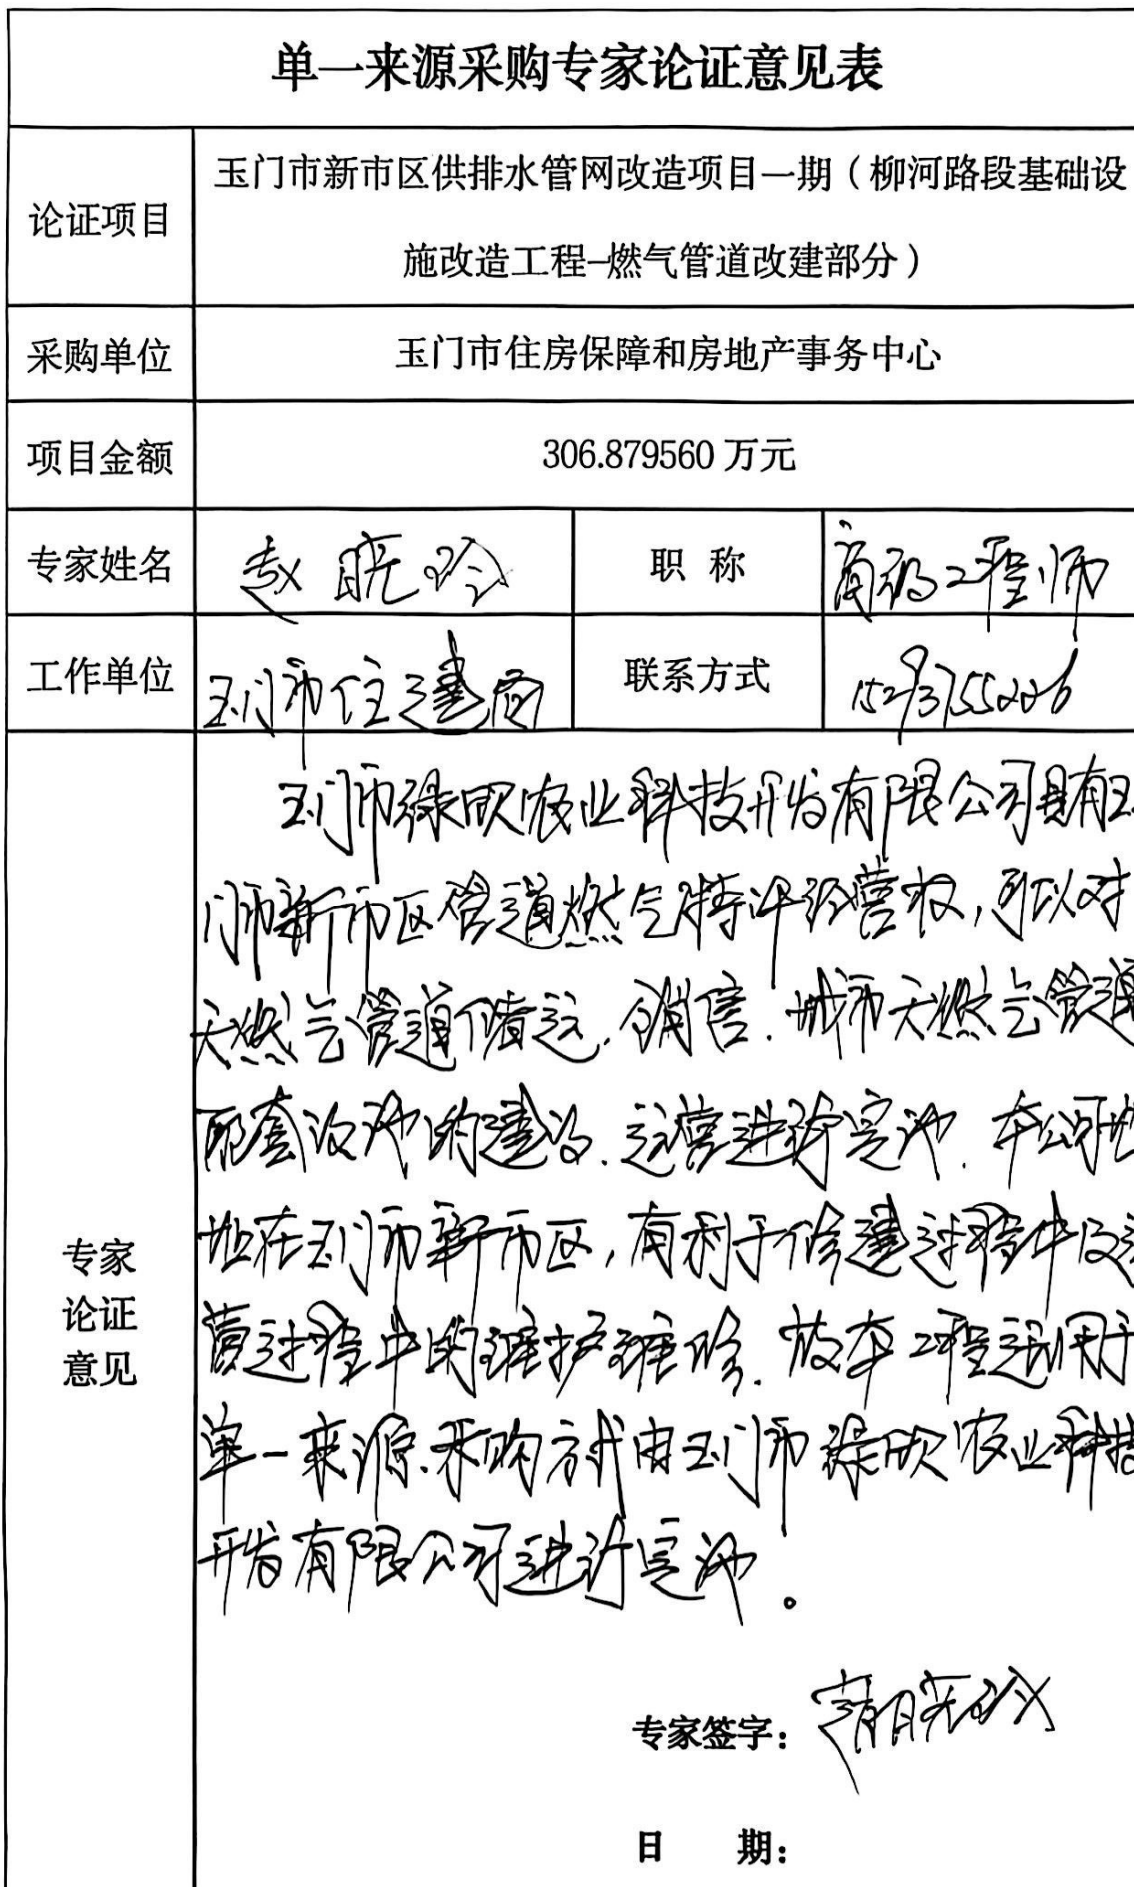 单一来源采购专家论证意见表
论证项目
玉门市新市区供排水管网改造项目一期（柳河路段基础设
施改造工程-燃气管道改建部分）
采购单位
玉门市住房保障和房地产事务中心
项目金额
306.879560 万元
专家姓名
赵晓玲
职 称
高级工程师
工作单位
玉门市住建局
联系方式
15293755226
专家
论证
意见
玉门市绿欣农业科技开发有限公司具有玉
门市新市区管道燃气特许经营权,可以对
天然气管道储运、销售、城市天然气管道
配套设施的建设、运营进行实施.本公司地
址在玉门市新市区,有利于修建过程中及运
营过程中的维护维修.故本工程适用于
单一来源采购方式由玉门市绿欣农业科技
开发有限公司进行实施。
专家签字：赵晓玲
日 期：